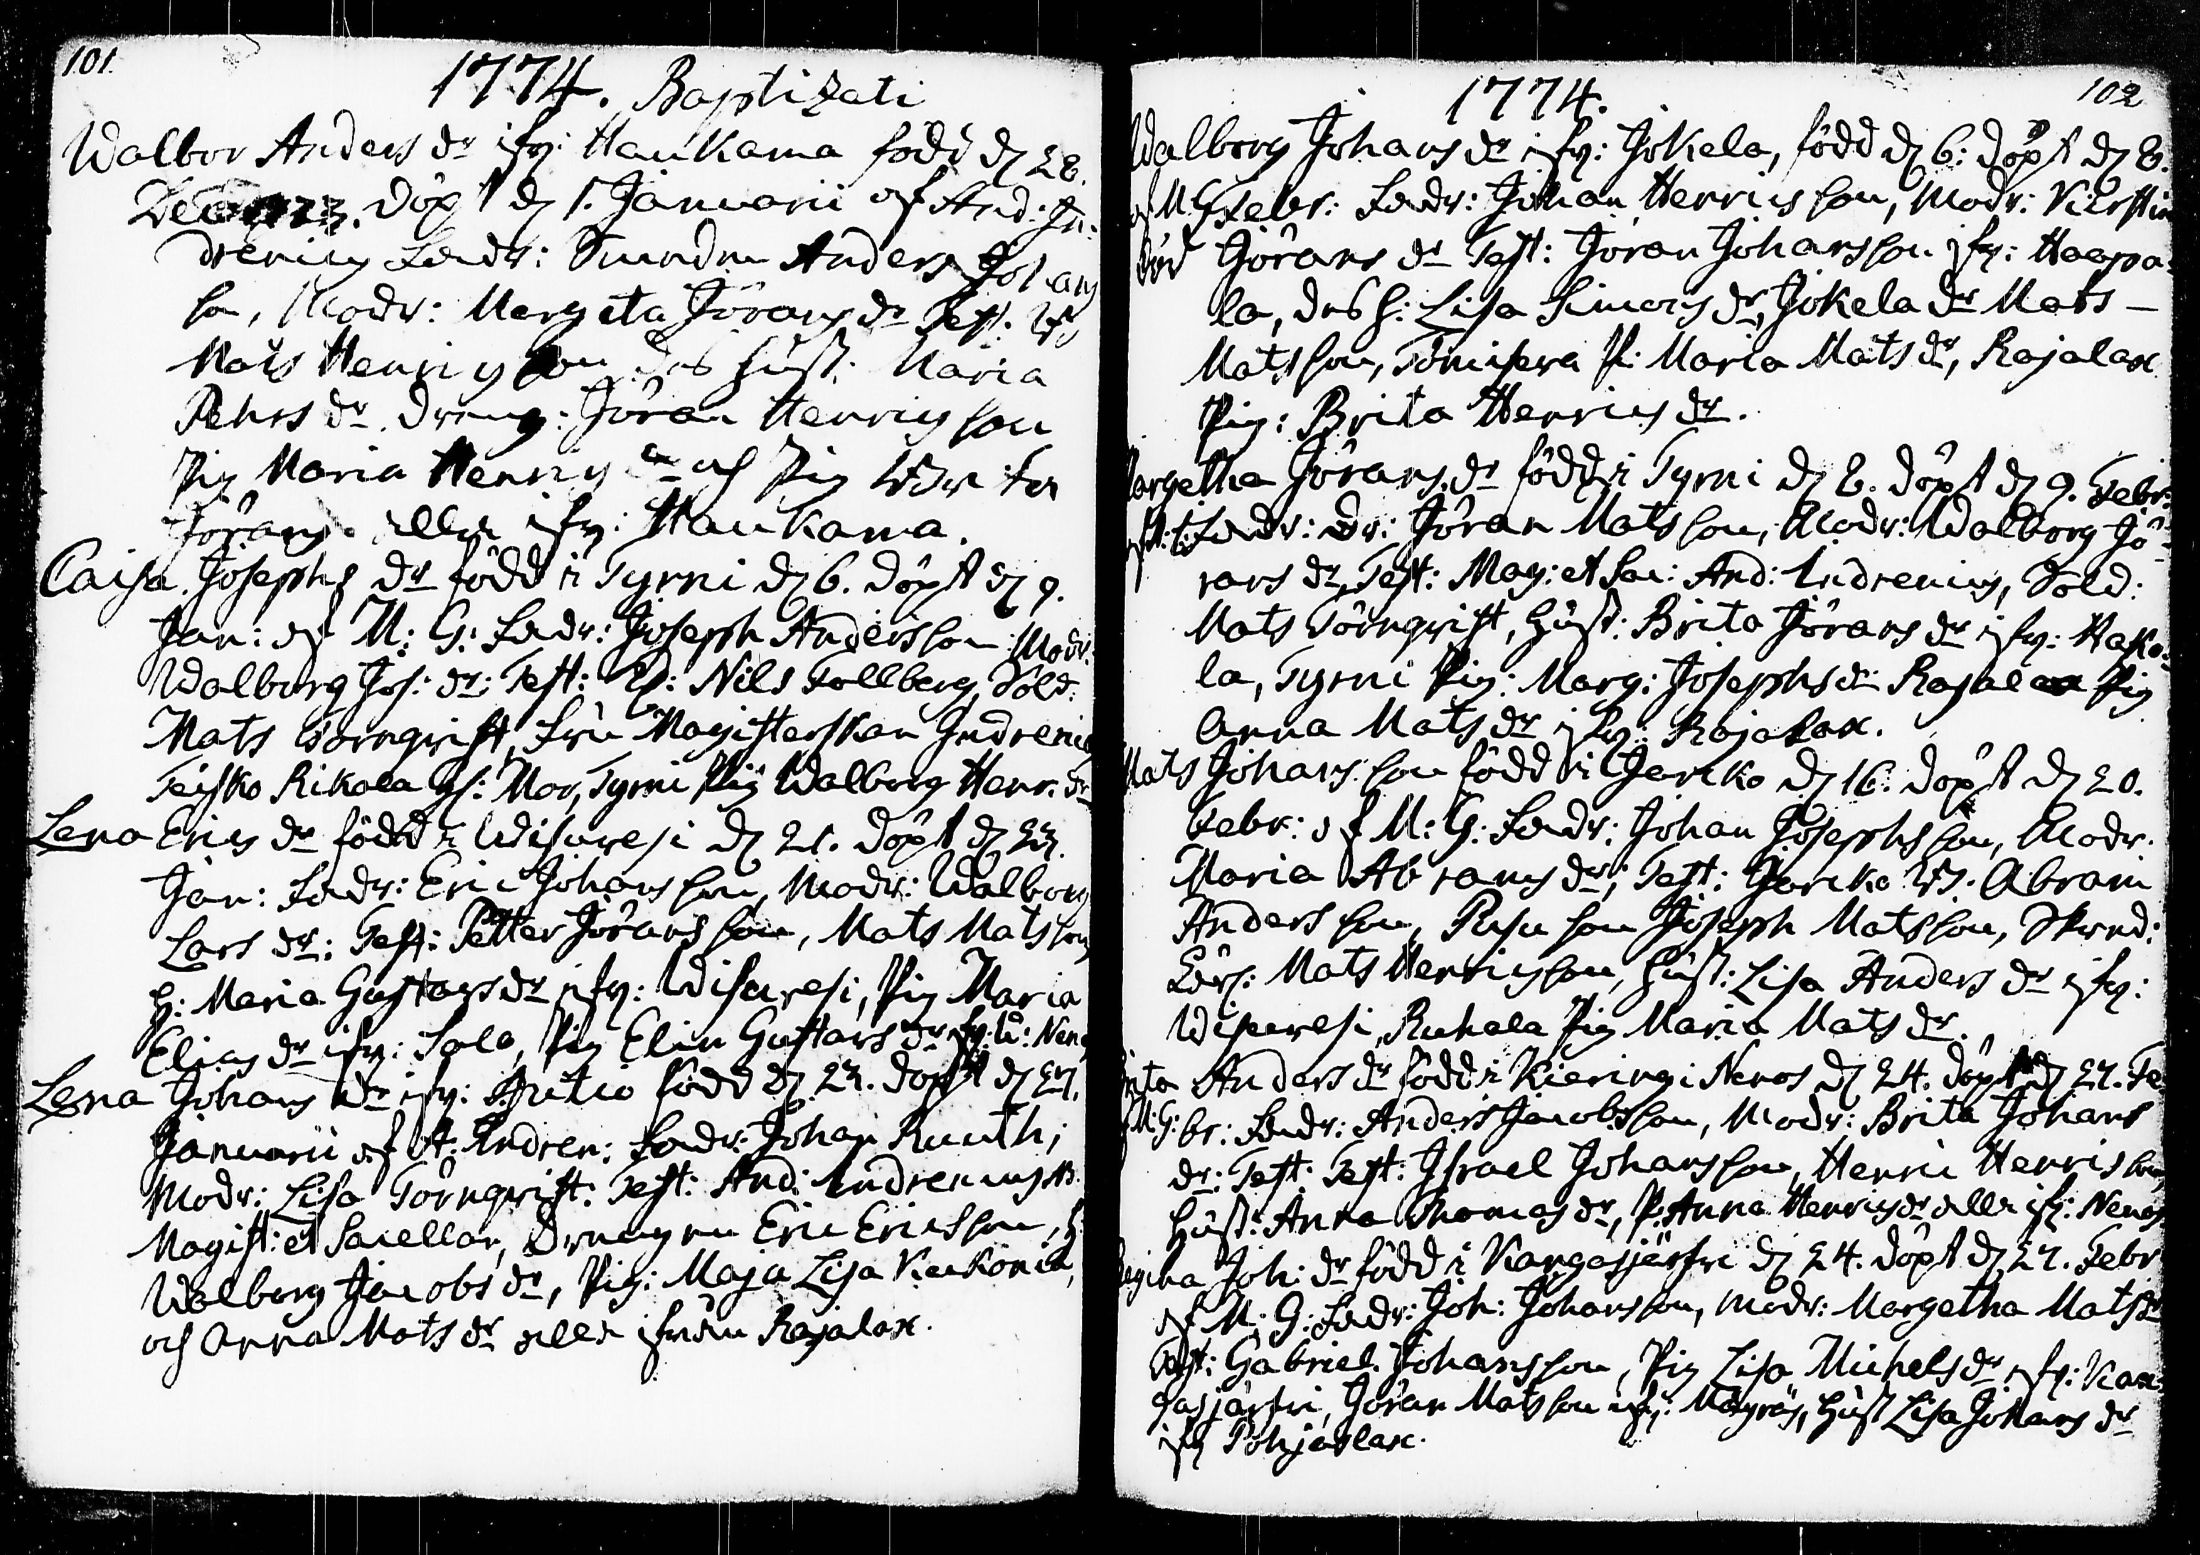 101.
1774. Baptizati
Walbor Anders dr ifr: Haukama född d 28.
Decemb. döpt d 1. Januarii af And: In-
drenius Fadr: Anders Johans
son, Modr: Margeta Jörans dr Test.
Mats Henricsson des hust: Maria
Pehrs dr. dreng: Jöran Henricsson
Pig Maria Henrics dr och Pig
Jörans alla ifr: Haukama.
Caisa Josephs dr född i Tyrni d 6. döpt d 9.
Jan: af M: G: Fadr: Joseph Andersson Modr.
Walborg Jos: dr: Test: Nils Tollberg, Sold.
Mats Törnqvist, Fru Magisterskan Indrenia
Teisko Rikala Mor, Tyrni Pig Walborg Henr. dr
Lena Erics dr född i Wisuvesi d 21. döpt d 23.
Jan: Fadr: Eric Johansson, Modr: Walborg
Lars dr: Test: Petter Jöransson, Mats Matsson
h: Maria Gustavs dr ifr: Wisuvesi, Pig Maria
Elias dr ifr: Salo, Pig Elin Gustavs dr
Lena Johans dr ifr: född d 23. döpt d 27.
Januarii af A: Indren: Fadr: Johan Ruuth;
Modr: Lisa Törnqvist. Test: And: Indrenius
Magist: et Sacellan, Drengen Eric Ericsson, h:
Walborg Jacobs dr, Pig: Maja Lisa Kaukonia,
och Anna Mats dr alla ifrån Rajalax.
102
1774.
Walborg Johans dr ifr: Jokela, född d 6: döpt d 8.
af M. G. Febr: Fadr: Johan Henricsson, Modr: Kierstin
död Jörans dr Test: Jöran Johansson ifr: Haapa-
la, des h: Lisa Simons dr, Jokela dr Mats
Matsson, P: Maria Mats dr, Rajalax
Pig: Brita Henrics dr.
Margetha Jörans dr född i Tyrni d 8. döpt d 9. Febr:
Fadr: dr: Jöran Matsson, Modr: Walborg Jö-
rans dr, Test: Mag: et Sac: And: Indrenius, Sold:
Mats Törnqvist, hust: Brita Jörans dr ifr: Hako-
la, Tyrni Pig: Marg: Josephs dr Rajalax Pig
Anna Mats dr ifr: Rajalax.
Mats Johansson född i Jericko d 16. döpt d 20.
Febr: af M: G: Fadr: Johan Josephsson, Modr.
Maria Abrams dr; Test: Jericko Abram
Andersson, son Joseph Matsson, Skrad:
Lär: Mats Henricsson, hust: Lisa Anders dr ifr:
Wisuvesi, Ruhala Pig Maria Mats dr.
Brita Anders dr född i Kieringi Neros d 24. döpt d 27. Fe-
M: G: br: Fadr: Anders Jacobsson, Modr: Brita Johans
dr: Test: Test: Israel Johansson, Henric Henricsson
hust: Anna Thomas dr, P. Anna Henrics dr alla ifr: Neros
Regina Joh: dr född i Kangasjärfvi d 24. döpt d 27. Febr
af M. G: Fadr: Joh: Johansson, Modr: Margetha Mats dr
Test: Gabriel Johansson, Pig Lisa Michels dr ifr: Kan-
gasjärfvi, Jöran Matsson ifr: hust Lisa Johans dr
ifr Pohjaslax.